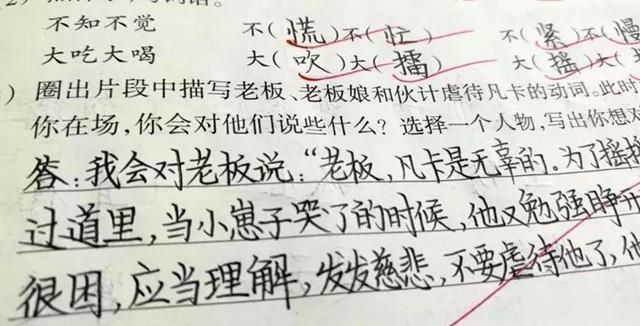 不知不觉 不(慌)不(忙) 不(紧)不(慢
大吃大喝 大(吹)大(擂) 大(摇)大(
) 圈出片段中描写老板、老板娘和伙计虐待凡卡的动词。此时
你在场,你会对他们说些什么? 选择一个人物,写出你想对
答:我会对老板说:“老板,凡卡是无辜的。为了摇
过道里,当小崽子哭了的时候,他又勉强睁开
很困,应当理解,发发慈悲,不要虐待他了,他